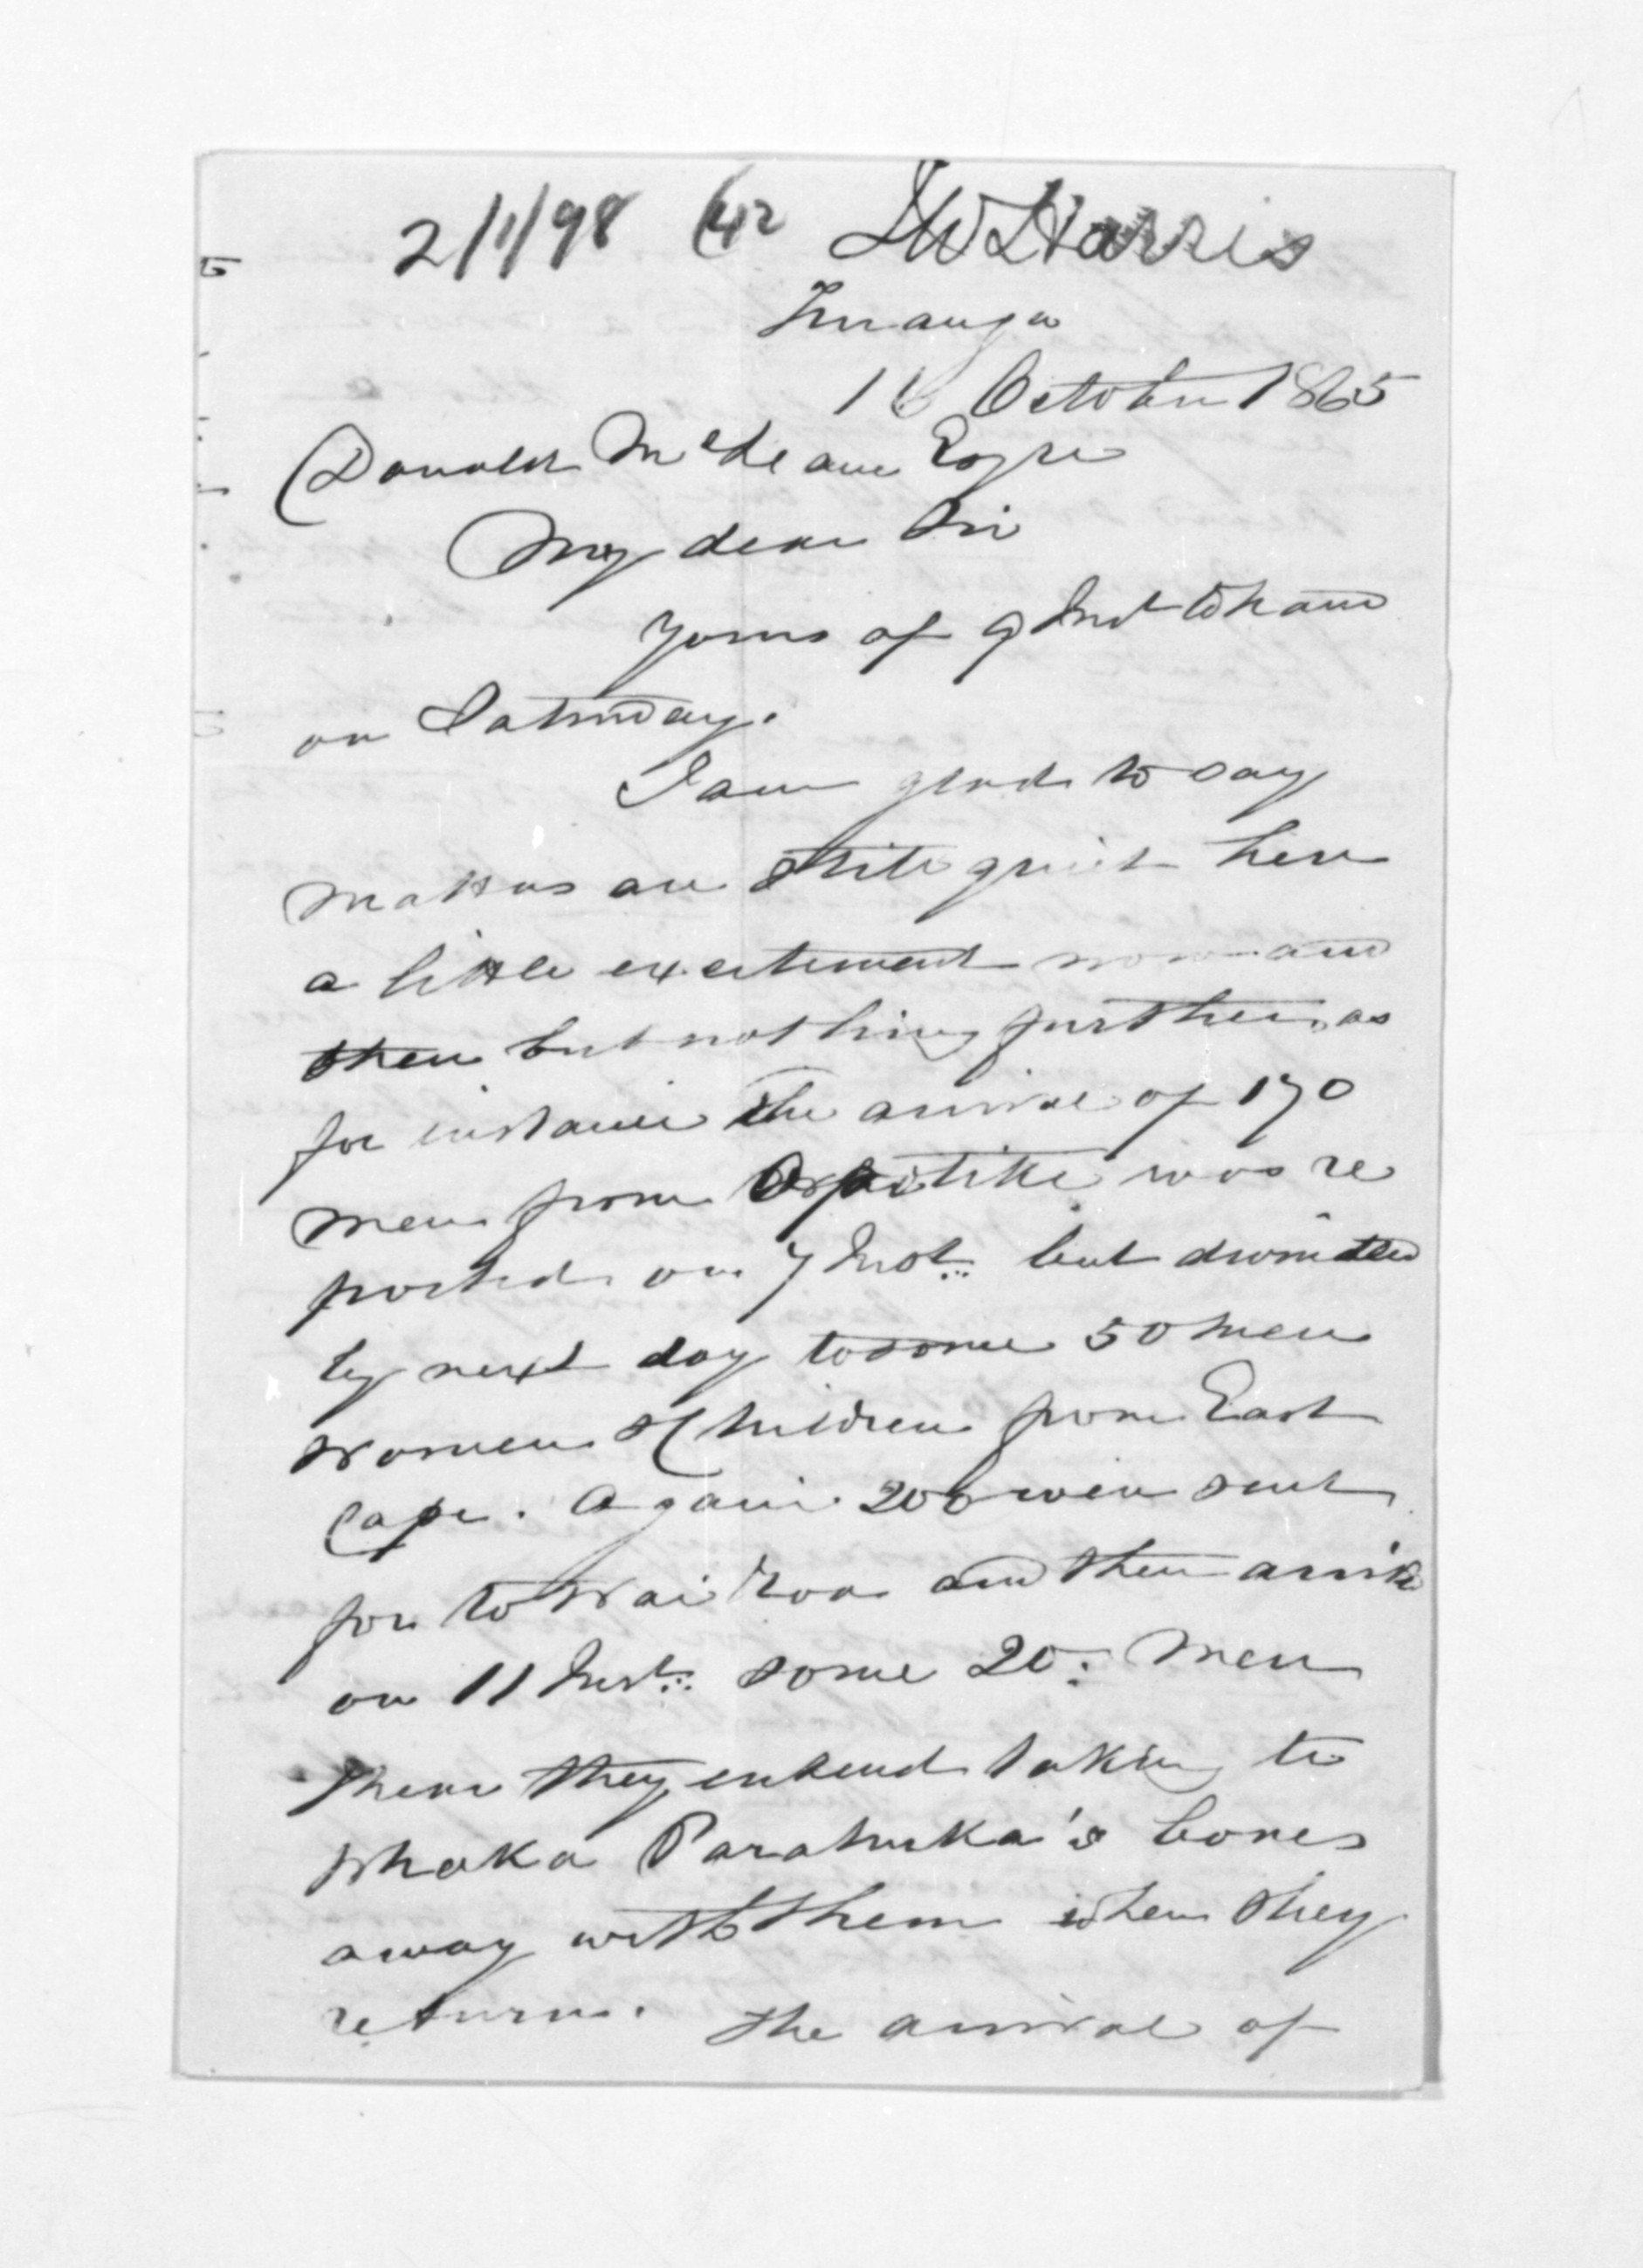 2/1/98 (42 JW Harris
Turanga
16 October 1865
Donald McLean Esqre
My dear Sir
Yours of 9 Inst to hand
on Saturday.
I am glad to say
matters are still quiet here
a little excitement now and
then but nothing further, as
for instance the arrival of 170
men from Opotiki was re
ported on 7 Inst. but dwindled
by next day to some 50 men
women & Children from East
Cape. Again 200 were sent
for to Wai roa and then arrived
on 11 Inst. some 20. Men
these they entend taking te
Whaka Parahuka's bones
away with them when they
return. The arrival of